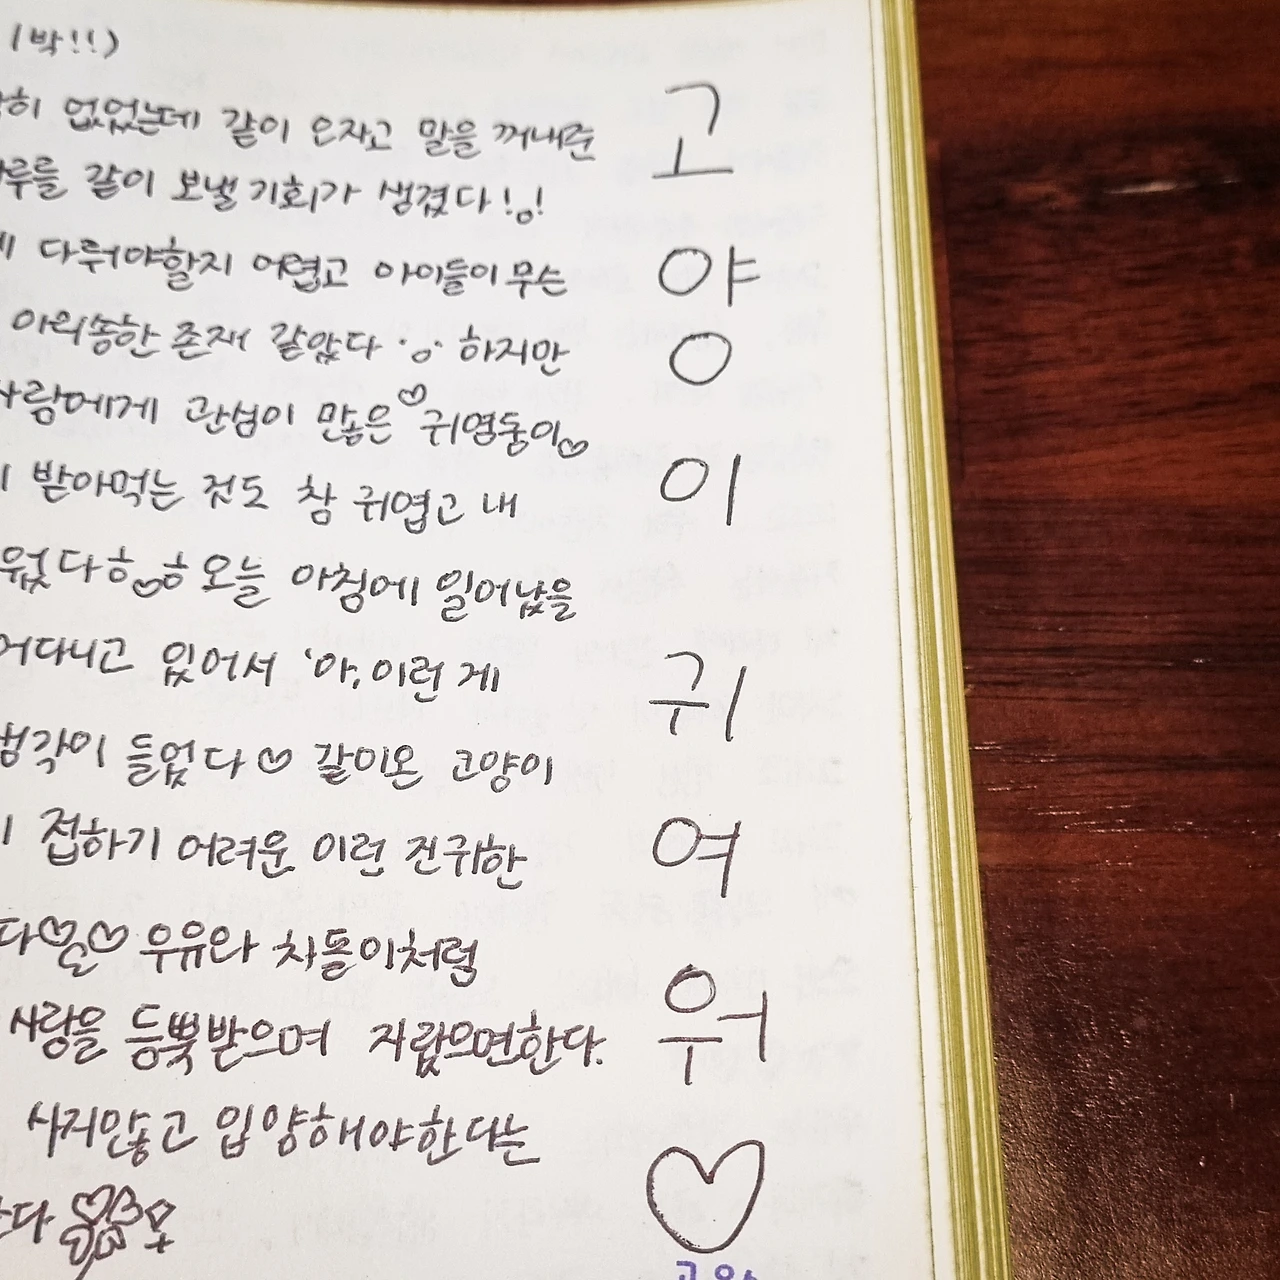 1박!!)
없었는데 같이 오자고 말을 꺼내준
하루를 같이 보낼 기회가 생겼다!o!
다뤄야할지 어렵고 아이들이 무슨
아리송한 존재 같았다 ·o· 하지만
사람에게 관심이 많은 ♡귀염둥이♡
받아먹는 것도 참 귀엽고 내
웠다ㅎ♡ㅎ 오늘 아침에 일어났을
어다니고 있어서 '아, 이런 게
생각이 들었다♡ 같이온 고양이
접하기 어려운 이런 진귀한
다♡일♡ 우유와 차돌이처럼
사랑을 듬뿍받으며 자랐으면한다.
사지않고 입양해야한다는
고
야
ㅇ
이
귀
여
워
♡